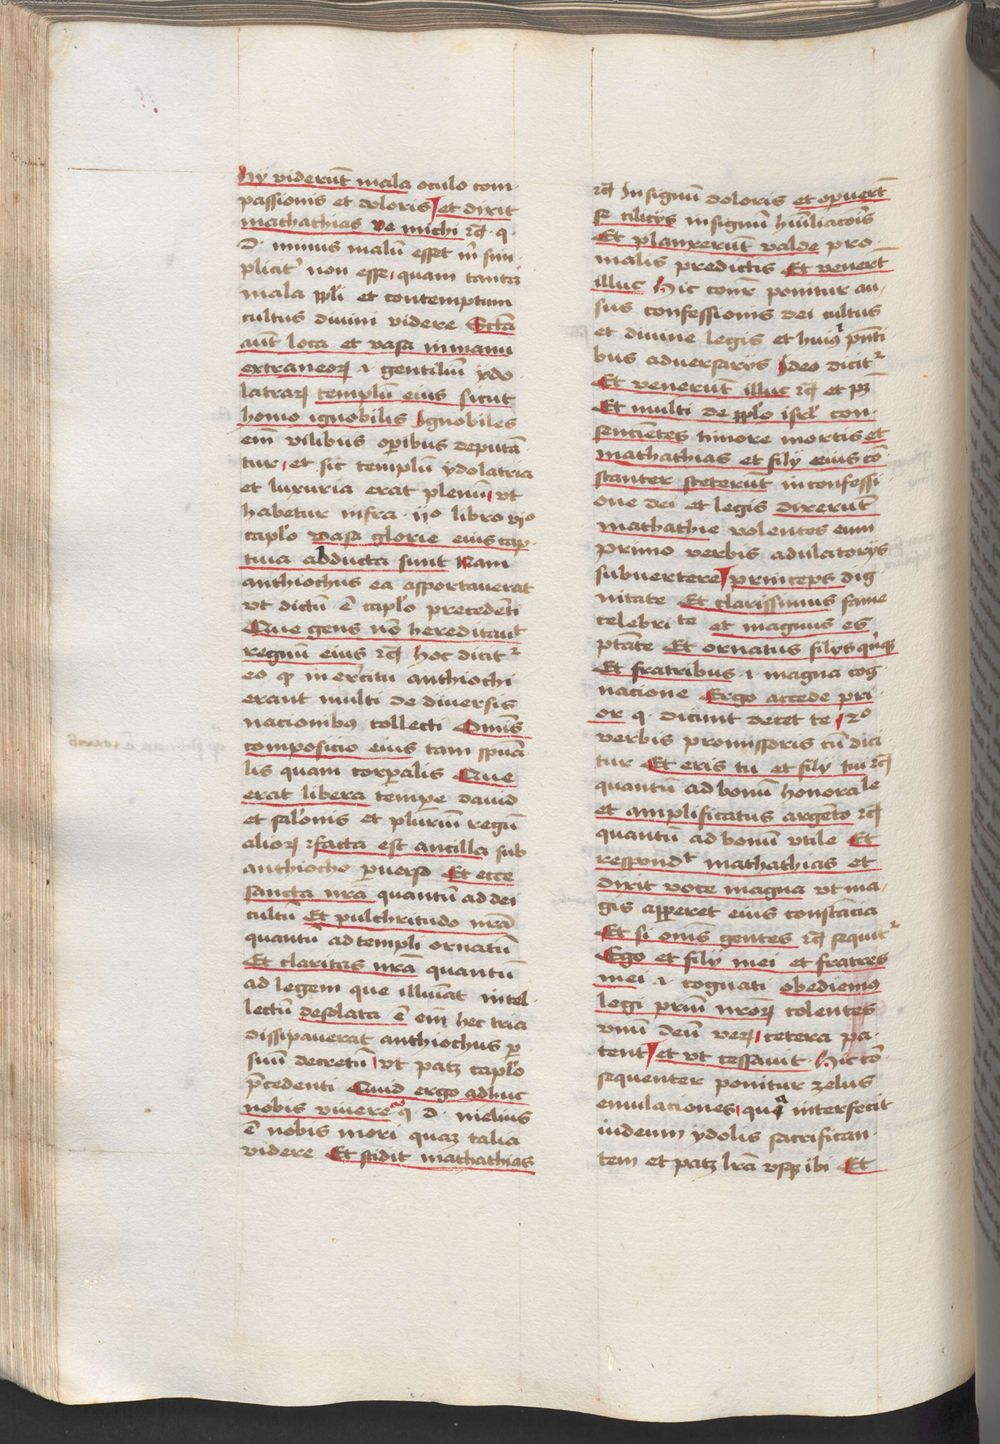 hy viderūt mala oculo com-
passionis et doloris et dixit
mathathias ve michi ꝛcꝫ q.
d. minus malū esset m̄ sim-
plicitˀ non esse, quam tanta
mala ppl̓i et contemptum
cultus divini videre Sctā
aūt loca et vasa in manu
extraneoꝝ .i. gentiliū ydo
latraꝝ templū eius sicut
homo ignobilis Ignobiles
em̄ vilibus op̄ibus deputā
tur, et sic templū ydolatria
et luxuria erat plenū, vt
habetur infra .ijo libro vjo
capl̓o vasa glorie eius cap-
tiua abducta sunt Nam
anthiochus ea asportauerat
vt dictū ē capl̓o precedēti
Que gens nō hereditauit
regnū eius ꝛcꝫ hoc dicitˀ
eo qꝫ in exc̄itu anthiochi
erant multi de diuersis
nacionibꝰ collecti Om̄is
composicio eius tam sp̄ua
lis quam corporalis Que
erat libera tempe dauid
et salōnis et plurīu regū
alioꝝ facta est ancilla sub
anthiocho puerso Et ecce
sancta nrā quantū ad dei
cultū Et pulchritudo nrā
quantū ad templi ornatū
Et claritas nrā quantū
ad legem que illuīat intel-
lectū desolata ē em̄ hec tria
dissipauerat anthiochus p
suū decretū, vt patꝫ capl̓o
p̄cedenti Quid ergo adhuc
nobis viuere q. d. melius
ē nobis mori quaꝫ talia
videre Et scidit mathathias
ꝛcꝫ In signū doloris et operuert̄
se cilicijs in signū hūiliacōis
Et planxerūt valde pro
malis predictis Et venert̄
illuc Hic cōnr̄ ponitur au-
sus confessionis dei cultus
et diuine legis et huiꝰ p̄nti
bus aduersarijs Ideo dicitˀ
Et venerūt illuc ꝛcꝫ et pꝫ
Et multi de ppl̓o isrl̓ con-
sencientes timore mortis et
mathathias et filij eius cō
stanter steterūt in confessi
one dei et legis dixerūt
mathathie volentes eum
primo verbis adulatorijs
subuertere princeps dig
nitate Et clarissimus fame
celebri te et magnus es
ptāte Et ornatus filijs
Et fratribus .i. magna cog
nacione Ergo accede pri-
or q. dicunt decet te, 2o
verbis promissoris cū dici
tur Et eris tu et filij tui ꝛcꝫ
quantū ad bonū honorale
et amplificatus argēto ꝛcꝫ
quantū ad bonū vtile Et
respondˀ mathathias et
dixit voce magna vt ma-
gis apperet eius constācia
Et si om̄s gentes ꝛcꝫ sequitˀ
Ego et filij mei et fratres
mei .i. cognati obediemꝰ
legi prīu nroꝝ colentes
vnū deū veꝝ, cetera pa-
tent et vt cessauit. Hic cō
sequenter ponitur zelus
emulaciones, interfecit
iudeum ydolis sacrifican-
tem et patꝫ lrā vsqꝫ ibi Et